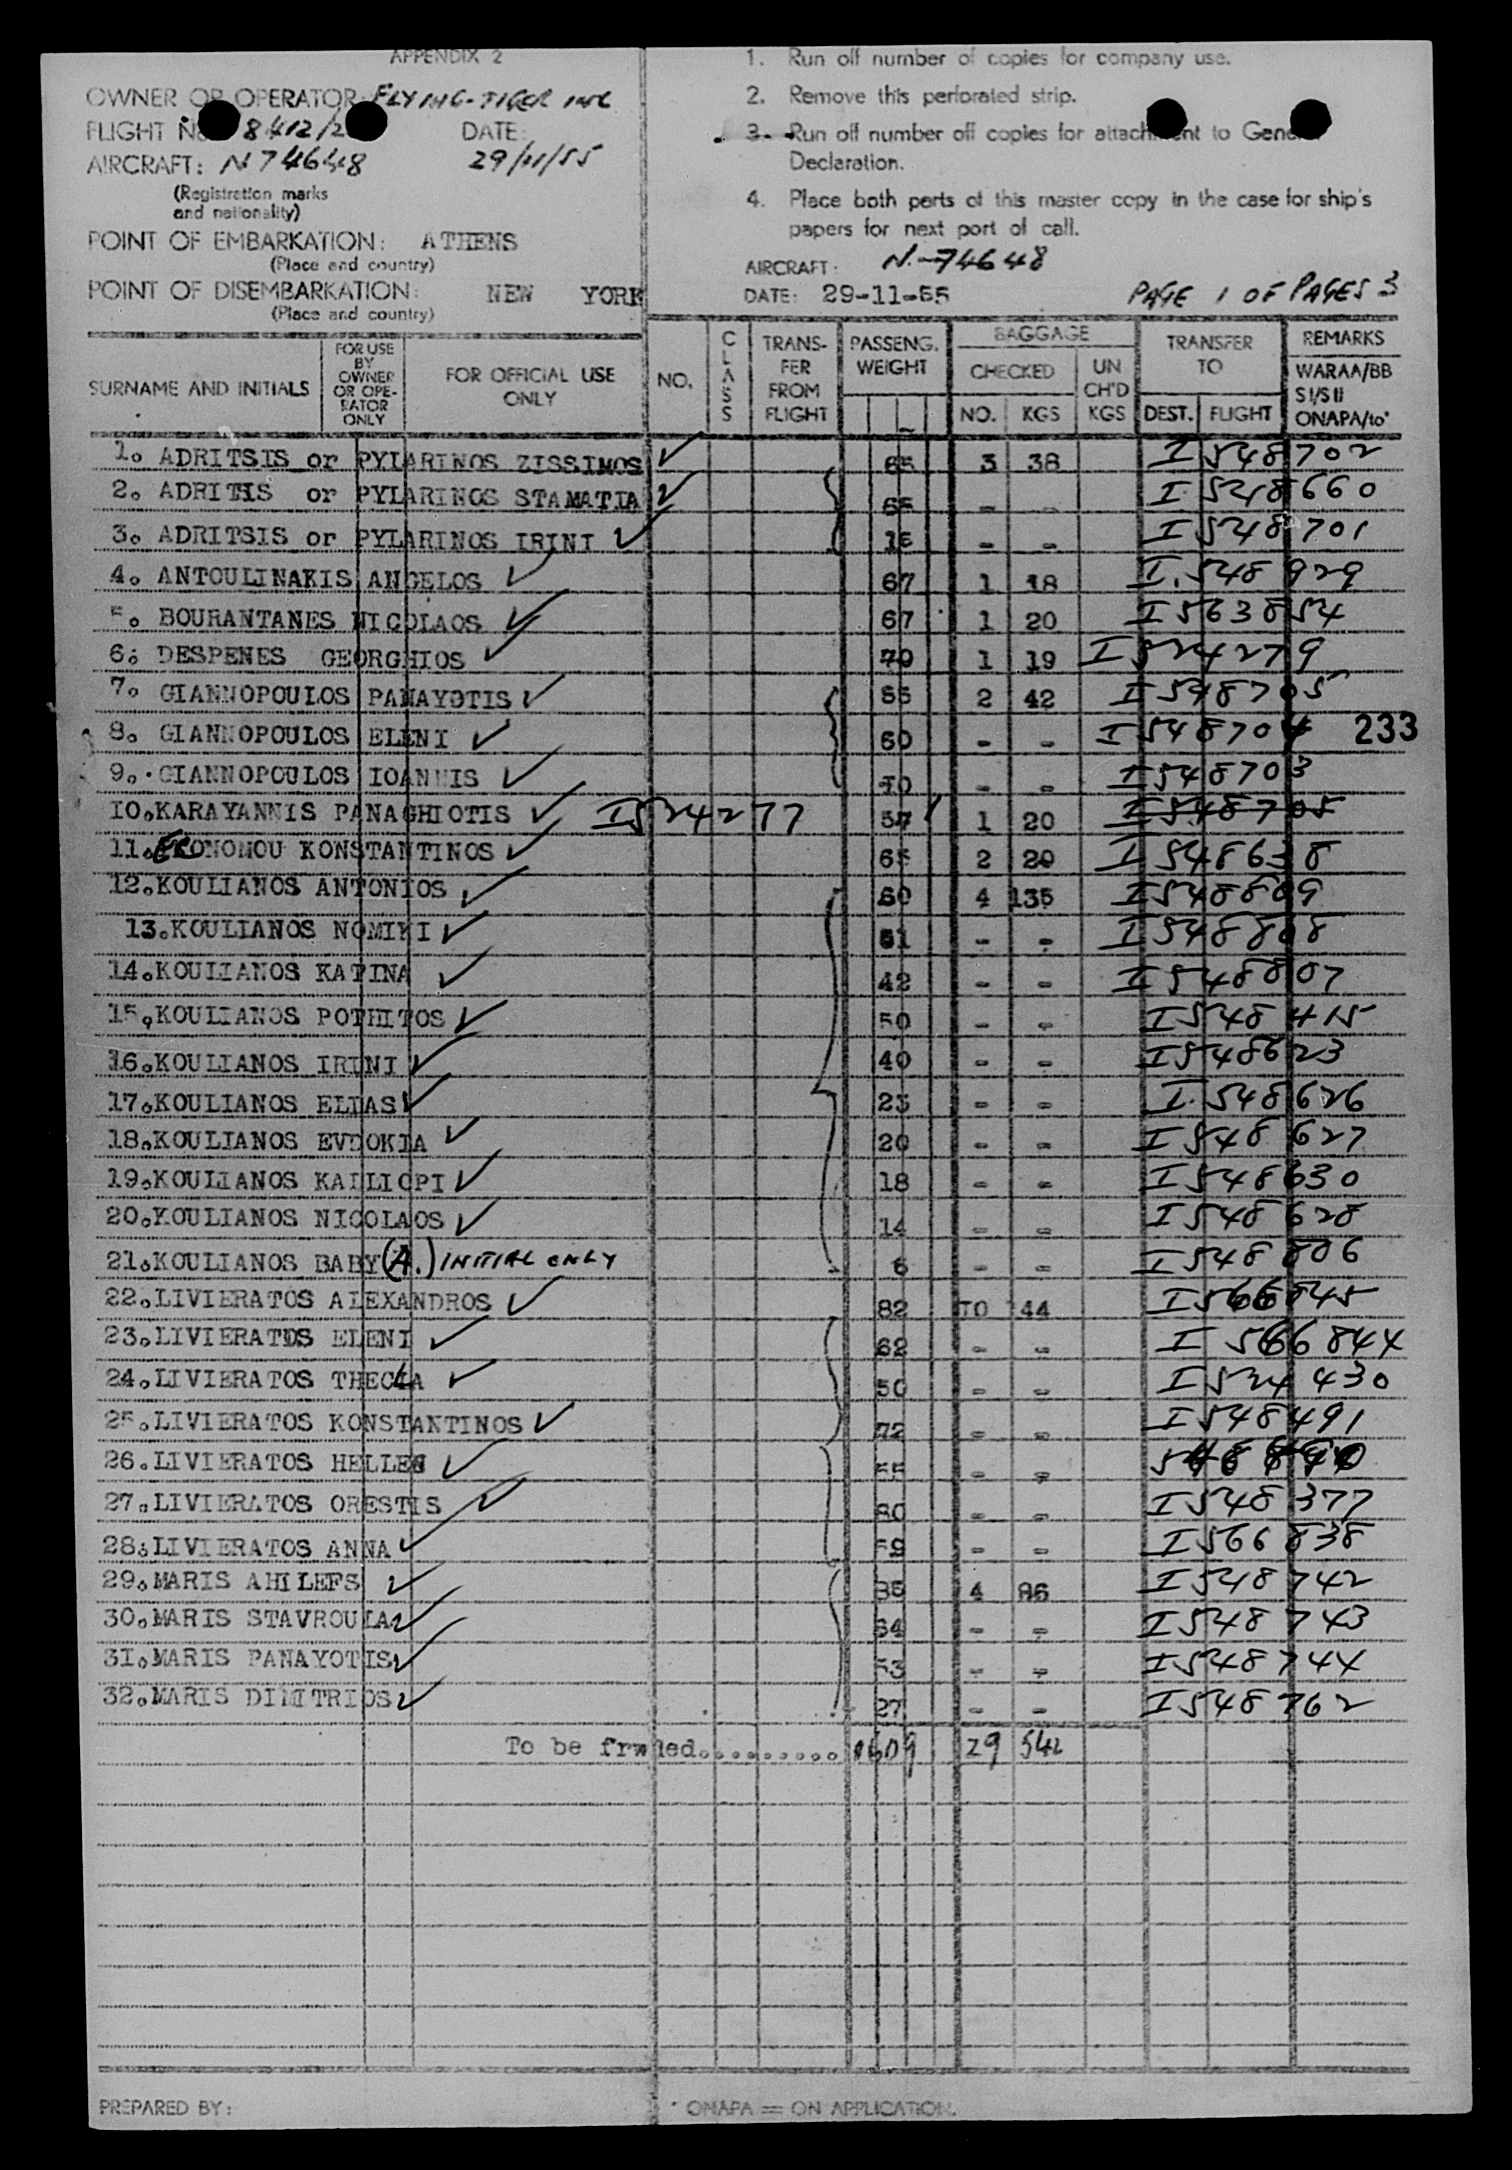 APPENDIX 2
OWNER OR OPERATOR: FLYING-TIGER INC
FLIGHT No 8412/2 DATE:
AIRCRAFT: N74648 29/11/55
(Registration marks
and nationality)
POINT OF EMBARKATION: ATHENS
(Place and country)
POINT OF DISEMBARKATION: NEW YORK
(Place and country)
1. Run off number of copies for company use.
2. Remove this perforated strip.
3. Run off number off copies for attachment to General
Declaration.
4. Place both parts of this master copy in the case for ship's
papers for next port of call.
AIRCRAFT: N-74648
DATE: 29-11-55 PAGE 1 OF PAGES 3
SURNAME AND INITIALS
FOR USE
BY
OWNER
OR OPE-
RATOR
ONLY
FOR OFFICIAL USE
ONLY
NO.
CLASS
TRANS-
FER
FROM
FLIGHT
PASSENG.
WEIGHT
BAGGAGE
CHECKED
NO. KGS
UN
CH'D
KGS
TRANSFER
TO
DEST. FLIGHT
REMARKS
WARAA/BB
SI/SII
ONAPA/to*
1. ADRITSIS or PYLARINOS ZISSIMOS 65 3 38 I 548702
2. ADRITIS or PYLARINOS STAMATIA 65 - - I 548660
3. ADRITSIS or PYLARINOS IRINI 15 - - I 548701
4. ANTOULINAKIS ANGELOS 67 1 18 I. 548929
5. BOURANTANES NICOLAOS 67 1 20 I 563854
6. DESPENES GEORGHIOS 70 1 19 I 524279
7. GIANNOPOULOS PANAYOTIS 55 2 42 I 548705
8. GIANNOPOULOS ELENI 60 - - I 548704 233
9. GIANNOPOULOS IOANNIS 10 - - I 548703
10. KARAYANNIS PANAGHIOTIS I524277 57 1 20 I 548705
11. EKONOMOU KONSTANTINOS 65 2 20 I 548638
12. KOULIANOS ANTONIOS 60 4 135 I 548809
13. KOULIANOS NOMIKI 51 - - I 548808
14. KOULIANOS KATINA 42 - - I 548807
15. KOULIANOS POTHITOS 50 - - I 548415
16. KOULIANOS IRINI 40 - - I 548623
17. KOULIANOS ELIAS 23 - - I. 548626
18. KOULIANOS EVDOKIA 20 - - I 548627
19. KOULIANOS KALLIOPI 18 - - I 548630
20. KOULIANOS NICOLAOS 14 - - I 548628
21. KOULIANOS BABY (A.) INITIAL ONLY 6 - - I 548806
22. LIVIERATOS ALEXANDROS 82 10 144 I 566845
23. LIVIERATOS ELENI 62 - - I 566844
24. LIVIERATOS THECLA 50 - - I 524430
25. LIVIERATOS KONSTANTINOS 72 - - I 548491
26. LIVIERATOS HELLEN 55 - -
27. LIVIERATOS ORESTIS 80 - - I 548377
28. LIVIERATOS ANNA 59 - - I 566838
29. MARIS AHILEFS 85 4 86 I 548742
30. MARIS STAVROULA 64 - - I 548743
31. MARIS PANAYOTIS 53 - - I 548744
32. MARIS DIMITRIOS 27 - - I 548762
To be frwded.......... 1609 29 542
PREPARED BY:
* ONAPA = ON APPLICATION.